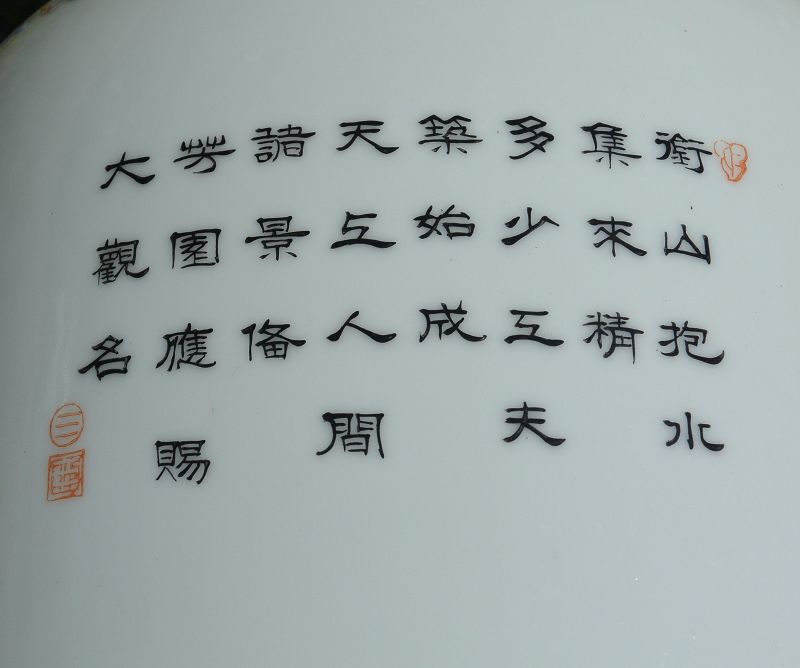 銜山抱水
集來精
多少工夫
築始成
天上人間
諸景備
芳園應賜
大觀名